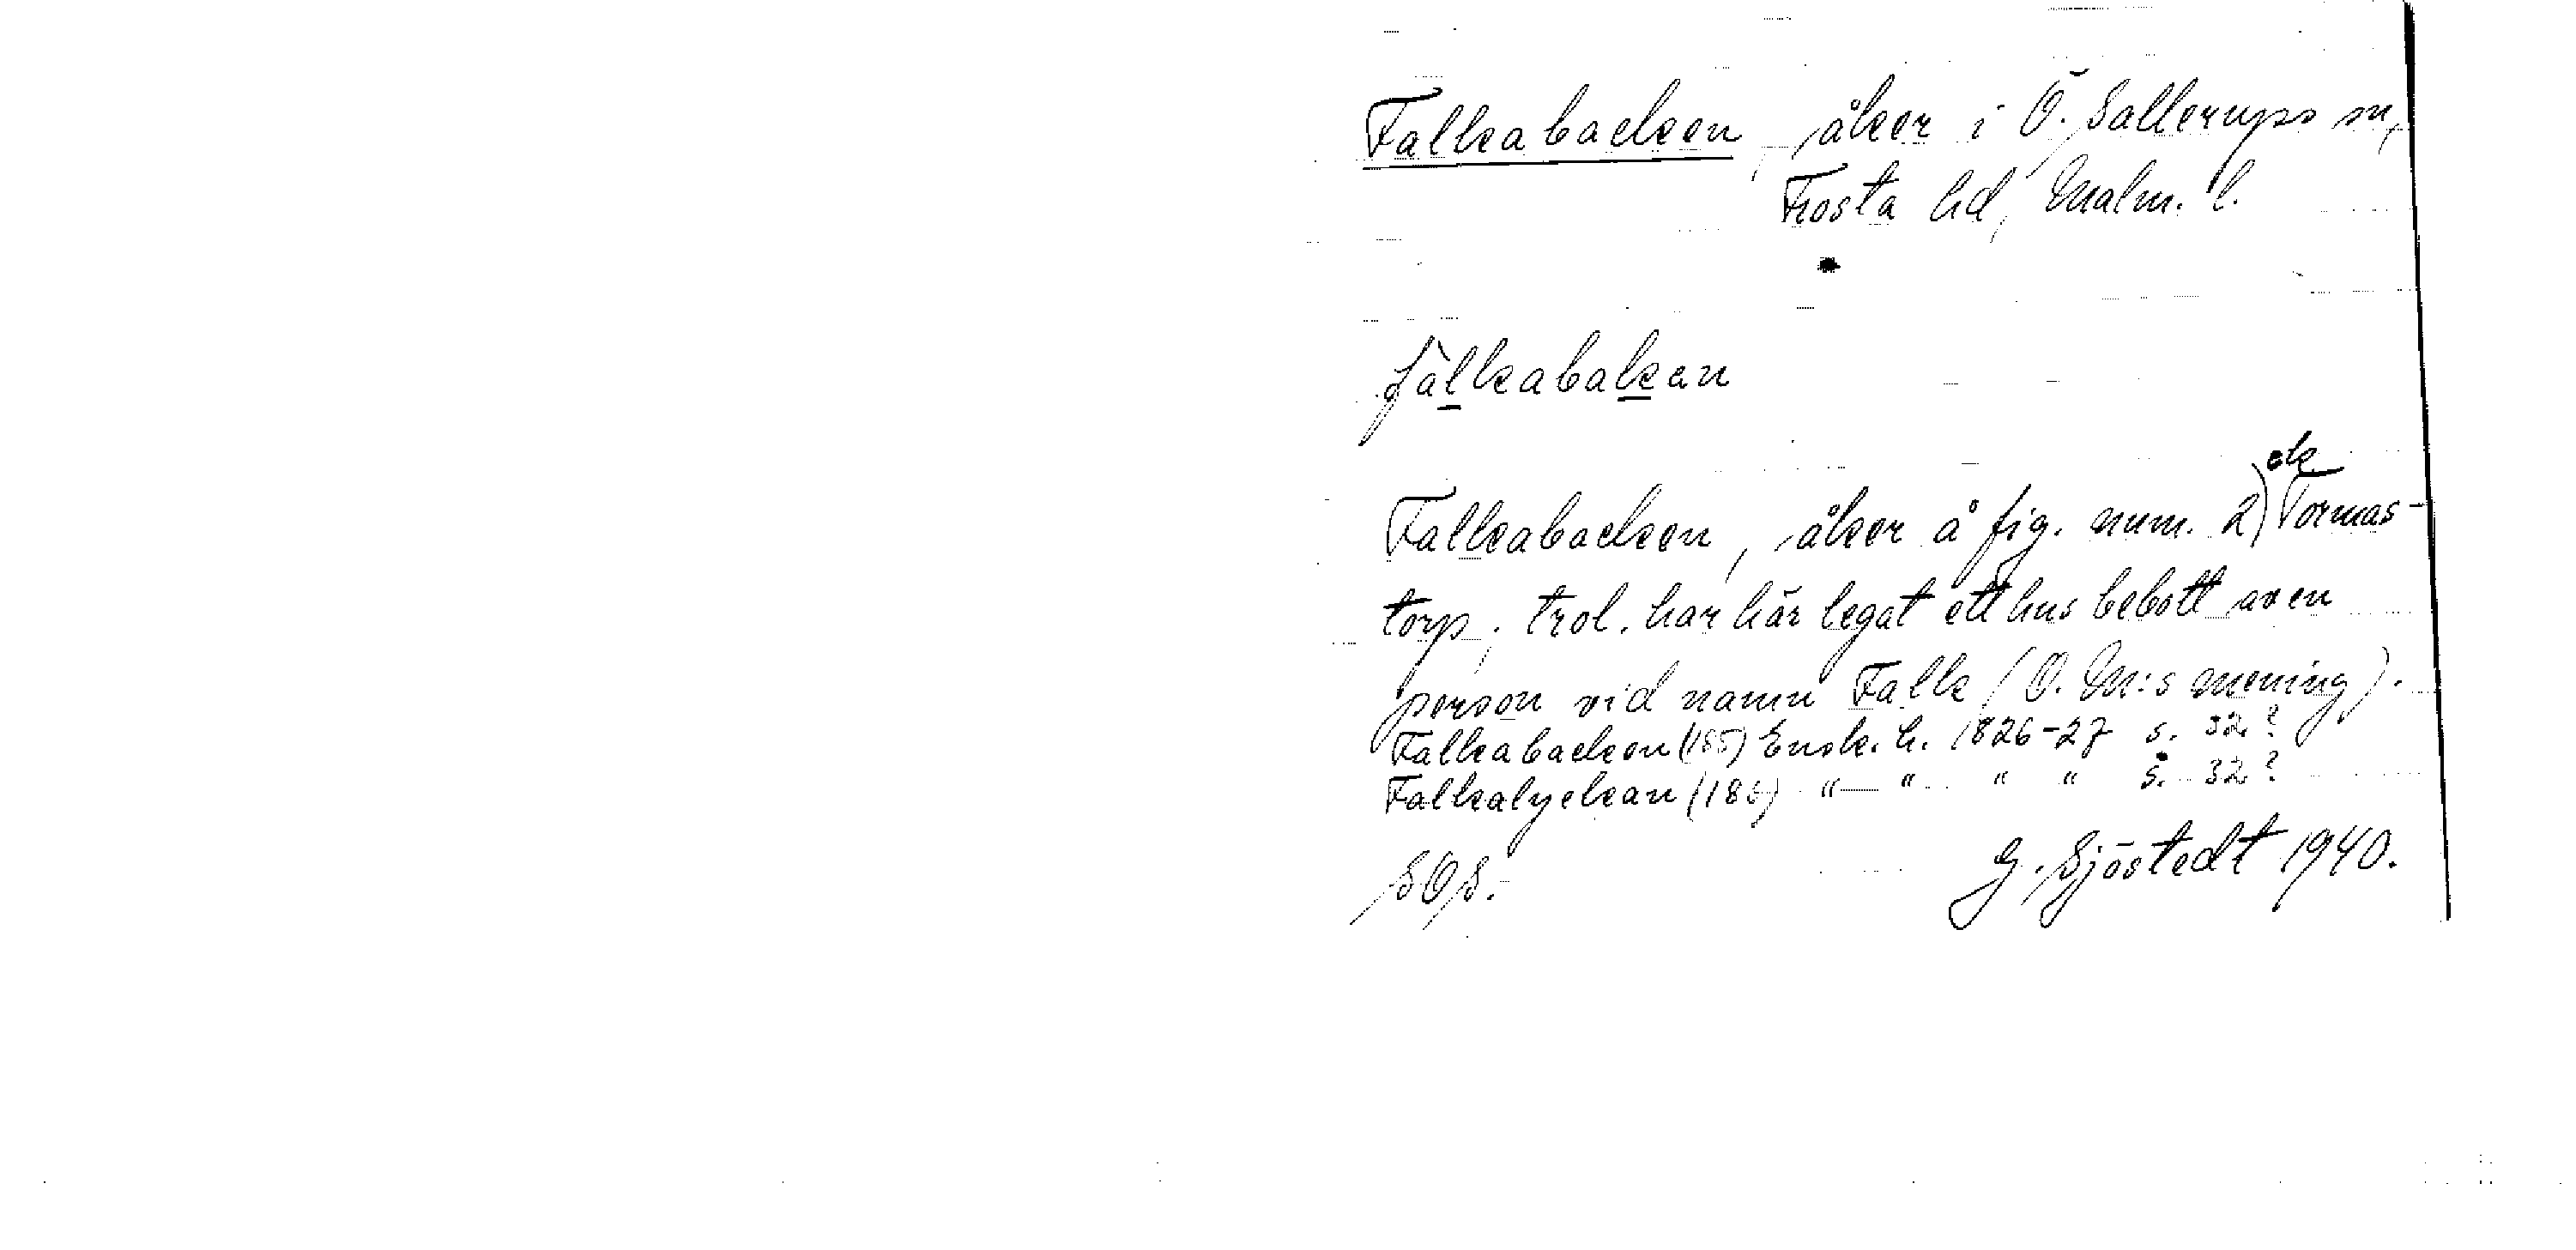 Falkabacken, åker i Ö. Sallerups sn,
Frosta hd, Malm. l.
fàlkabakan
Falkabacken, åker å fig. num. 2) ek Tormas-
torp; trol. har här legat ett hus bebott av en
person vid namn Falk (O. M:s mening).
Falkabacken (185) Ensk. h. 1826-27 s. 32?
Falkalyckan (186) "— " " " s. 32?
SOS. G. Sjöstedt 1940.